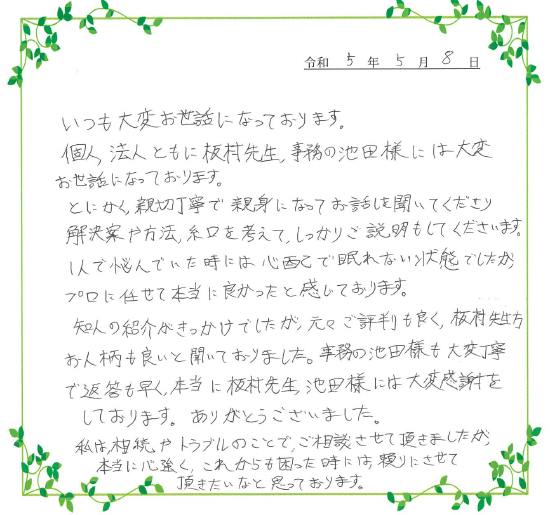 令和 5 年 5 月 8 日
いつも大変お世話になっております。
個人、法人ともに板村先生、事務の池田様には大変
お世話になっております。
とにかく、親切丁寧で親身になってお話しを聞いてくださり
解決案や方法、糸口を考えて、しっかりご説明もしてくださいます。
1人で悩んでいた時には心配で眠れない状態でしたが、
プロに任せて本当に良かったと感じております。
知人の紹介がきっかけでしたが、元々ご評判も良く、板村先生方
お人柄も良いと聞いておりました。事務の池田様も大変丁寧
で返答も早く、本当に板村先生、池田様には大変感謝を
しております。ありがとうございました。
私は、相続やトラブルのことで、ご相談させて頂きましたが、
本当に心強く、これからも困った時には頼りにさせて
頂きたいなと思っております。